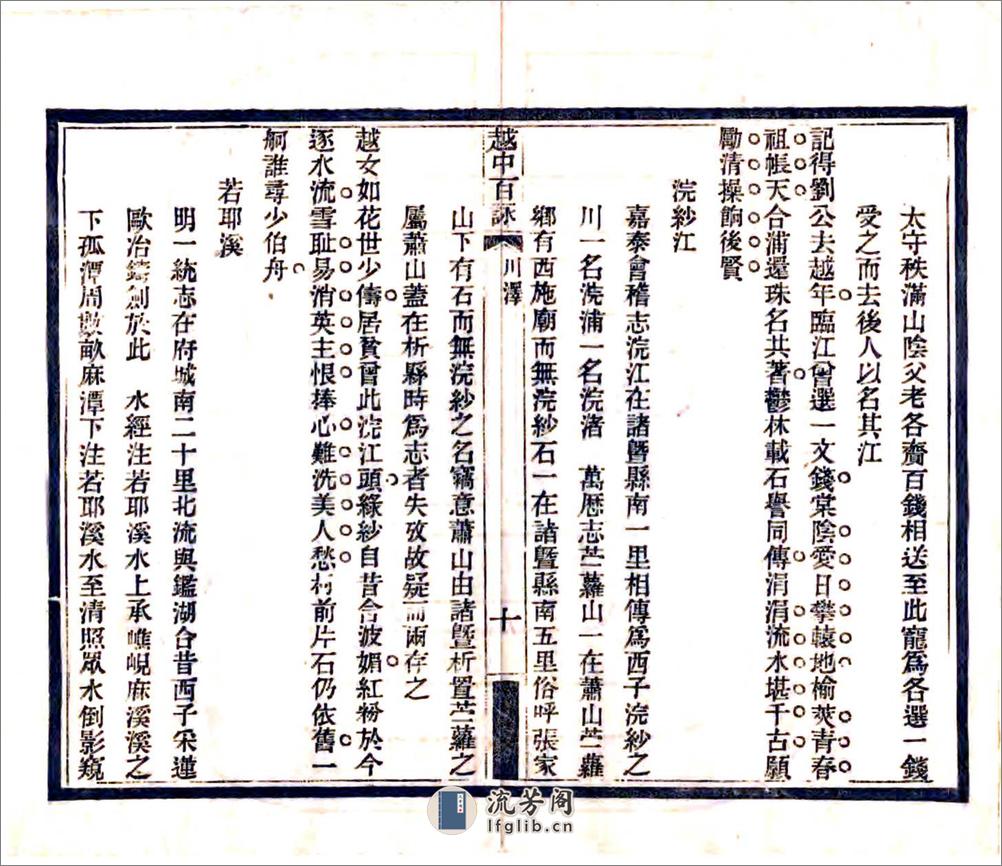 太守秩滿山陰父老各齎百錢相送至此寵爲各選一錢
愛之而去後人以名其江
記得劉公去越年臨江曾選一文錢棠陰愛日攀轅地榆莢青春
祖帳天合浦還珠名共著鬱林載石譽同傳涓涓流水堪千古願
勵清操餉後賢
浣紗江
嘉泰會稽志浣江在諸暨縣南一里相傳爲西子浣紗之
川一名浣浦一名浣渚 萬厯志苎蘿山一在蕭山苎蘿
鄉有西施廟而無浣紗石一在諸暨縣南五里俗呼張家
山下有石而無浣紗之名竊意蕭山由諸暨析置苎蘿之
屬蕭山蓋在析縣時爲志者失攷故疑而兩存之
越女如花世少儔居貧曾此浣江頭綠紗自昔含波媚紅粉於今
逐水流雪耻易消英主恨捧心難洗美人愁村前片石仍依舊一
舸誰尋少伯舟
若耶溪
明一統志在府城南二十里北流與鑑湖合昔西子采蓮
歐冶鑄劍於此 水經注若耶溪水上承嶕峴麻溪溪之
下孤潭周數畝麻潭下注若耶溪水至清照眾水倒影窺
越中百詠
川澤
十
流芳阁
lfglib.cn